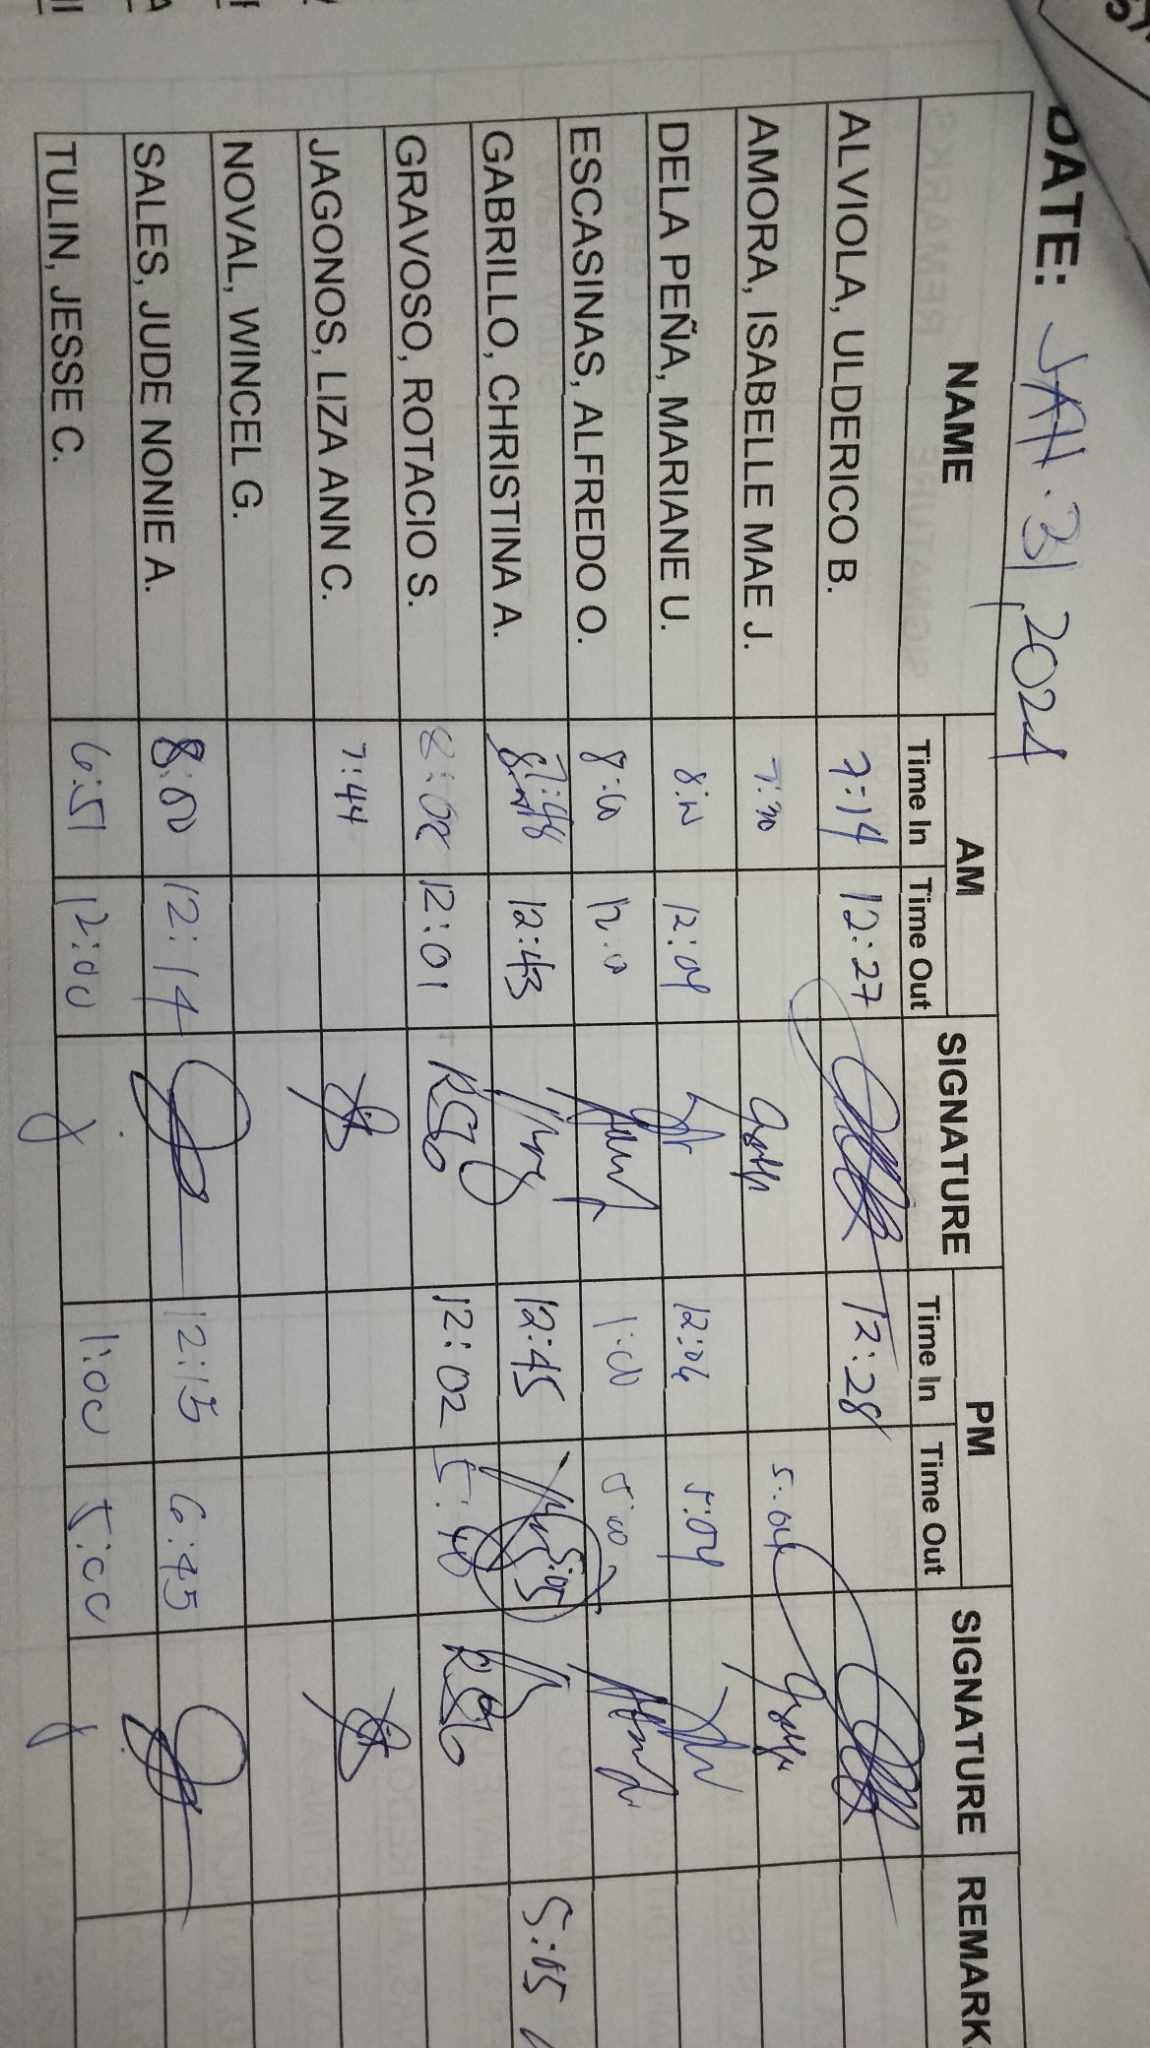 DATE: JAN. 31, 2024
NAME AM SIGNATURE PM SIGNATURE REMARK
Time In Time Out Time In Time Out
ALVIOLA, ULDERICO B. 7:14 12:27 12:28
AMORA, ISABELLE MAE J. 7:30 5:04
DELA PEÑA, MARIANE U. 8:00 12:04 12:06 5:04
ESCASINAS, ALFREDO O. 8:00 12:00 1:00 5:00
GABRILLO, CHRISTINA A. 7:48 12:43 12:45 5:05 5:05
GRAVOSO, ROTACIO S. 8:00 12:01 12:02
JAGONOS, LIZA ANN C. 7:44
NOVAL, WINCEL G.
SALES, JUDE NONIE A. 8:00 12:14 12:15 6:45
TULIN, JESSE C. 6:51 12:00 1:00 5:00